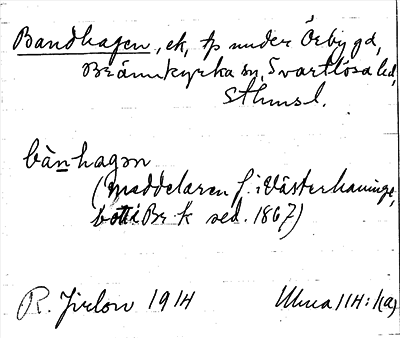 Bandhagen, ek, tp under Örby gd,
Brännkyrka sn, Svartlösa hd,
Sthmsl.
bànhagən
(meddelaren f. i Västerhaninge,
bott i Br k sed. 1867)
R. Jirlow 1914
Ulma 114:1(a)